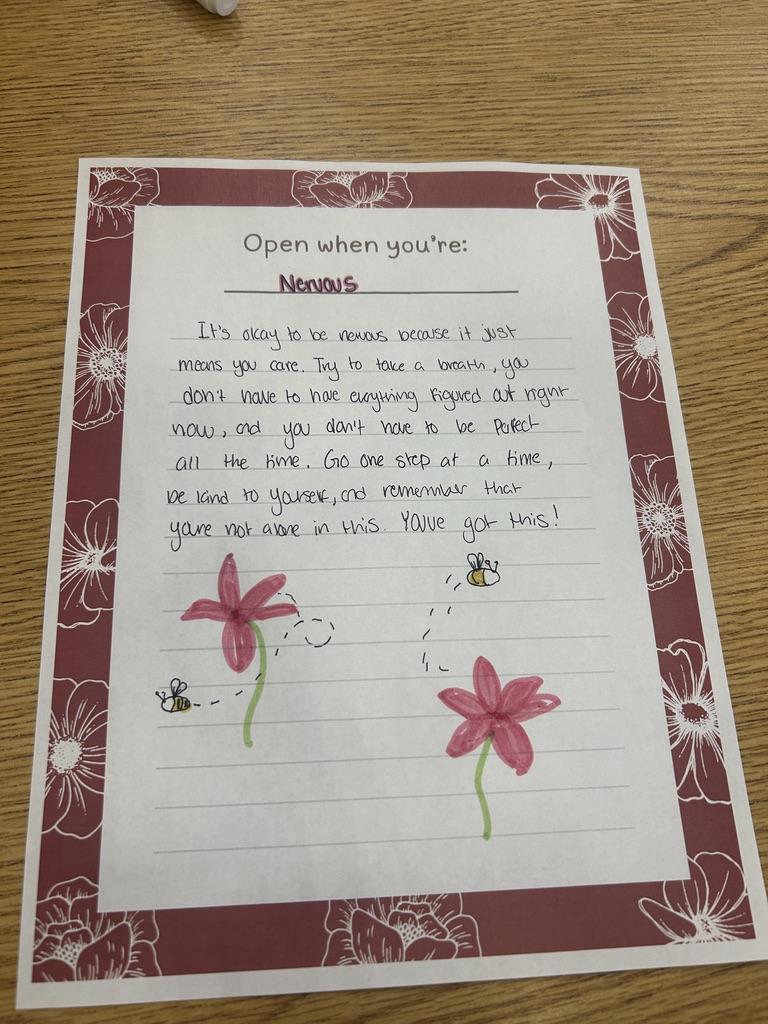 Open when you're:
Nervous
It's okay to be nervous because it just
means you care. Try to take a breath, you
don't have to have everything figured out right
now, and you don't have to be perfect
all the time. Go one step at a time,
be kind to yourself, and remember that
you're not alone in this. You've got this!